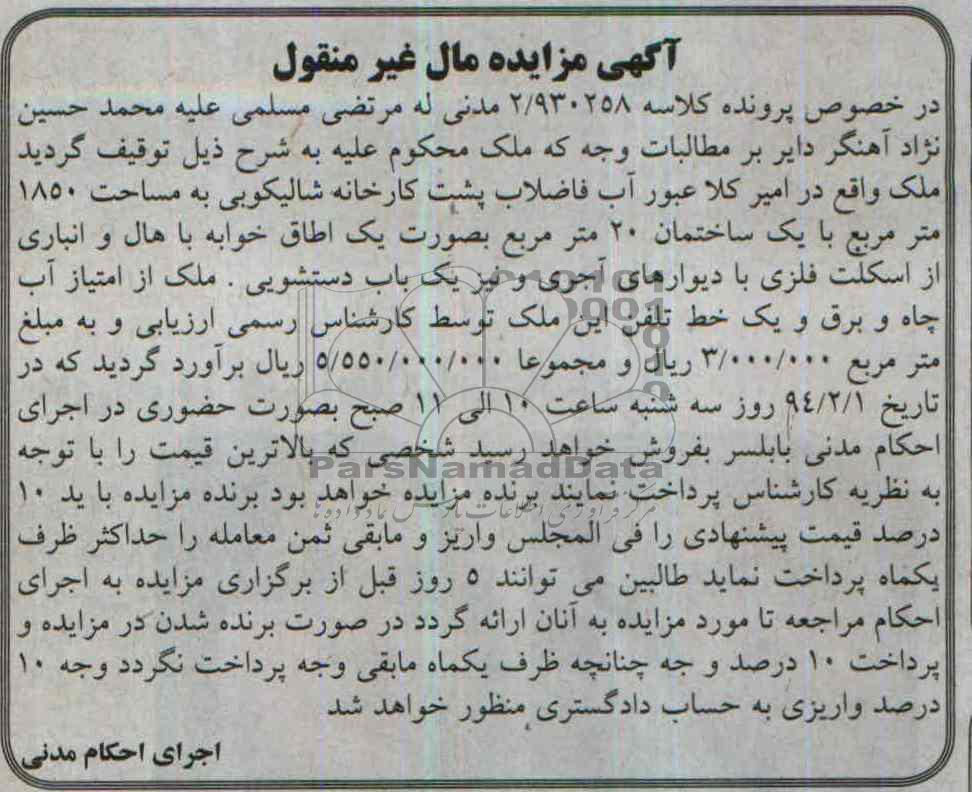 آگهی مزایده مال غیر منقول
در خصوص پرونده کلاسه ۲/۹۳۰۲۵۸ مدنی له مرتضی مسلمی علیه محمد حسین
نژاد آهنگر دایر بر مطالبات وجه که ملک محکوم علیه به شرح ذیل توقیف گردید
ملک واقع در امیر کلا عبور آب فاضلاب پشت کارخانه شالیکوبی به مساحت ۱۸۵۰
متر مربع با یک ساختمان ۲۰ متر مربع بصورت یک اطاق خوابه با هال و انباری
از اسکلت فلزی با دیوارهای آجری و نیز یک باب دستشویی . ملک از امتیاز آب
چاه و برق و یک خط تلفن این ملک توسط کارشناس رسمی ارزیابی و به مبلغ
متر مربع ۳/۰۰۰/۰۰۰ ریال و مجموعا ۵/۵۵۰/۰۰۰/۰۰۰ ریال برآورد گردید که در
تاریخ ۹٤/۲/۱ روز سه شنبه ساعت ۱۰ الی ۱۱ صبح بصورت حضوری در اجرای
احکام مدنی بابلسر بفروش خواهد رسید شخصی که بالاترین قیمت را با توجه
ParsNamadData
به نظریه کارشناس پرداخت نمایند برنده مزایده خواهد بود برنده مزایده با ید ۱۰
مرکز فرآوری اطلاعات پارس نماد داده ها
درصد قیمت پیشنهادی را فی المجلس واریز و مابقی ثمن معامله را حداکثر ظرف
یکماه پرداخت نماید طالبین می توانند ۵ روز قبل از برگزاری مزایده به اجرای
احکام مراجعه تا مورد مزایده به آنان ارائه گردد در صورت برنده شدن در مزایده و
پرداخت ۱۰ درصد و جه چنانچه ظرف یکماه مابقی وجه پرداخت نگردد وجه ۱۰
درصد واریزی به حساب دادگستری منظور خواهد شد
اجرای احکام مدنی